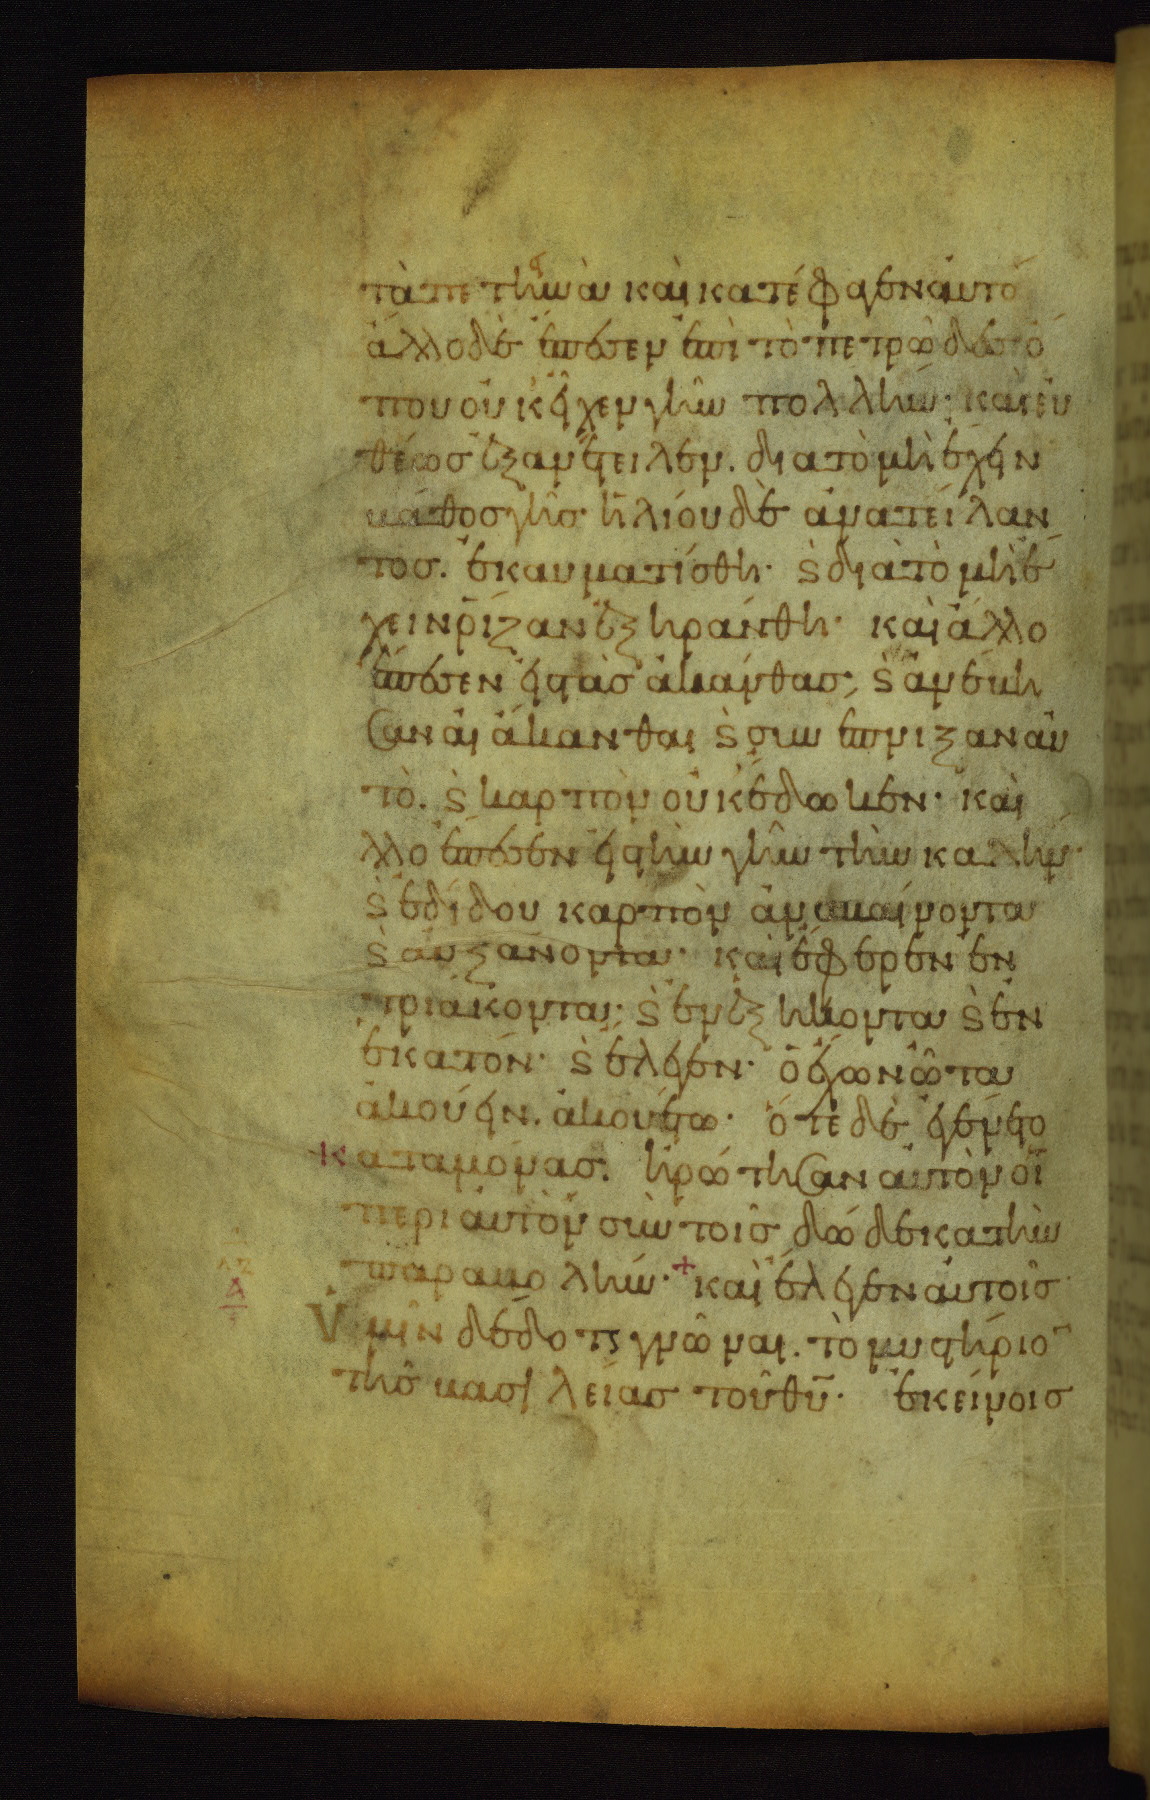 τὰ πετεινὰ καὶ κατέφαγεν αὐτό
ἄλλο δὲ ἔπεσεν ἐπὶ τὸ πετρῶδες ὅ
που οὐκ εἶχεν γῆν πολλήν· καὶ εὐ
θέως ἐξανέτειλεν. διὰ τὸ μὴ ἔχειν
βάθος γῆς· ἡλίου δὲ ἀνατείλαν
τος. ἐκαυματίσθη· ϗ διὰ τὸ μὴ ἔ
χειν ῥίζαν ἐξηράνθη· καὶ ἄλλο
ἔπεσεν εἰς τὰς ἀκάνθας· ϗ ἀνέβη
σαν αἱ ἄκανθαι ϗ συνέπνιξαν αὐ
τὸ. ϗ καρπὸν οὐκ ἔδωκεν· καὶ
λλο ἔπεσεν εἰς τὴν γῆν τὴν καλήν·
ϗ ἐδίδου καρπὸν ἀναβαίνοντα
ϗ αὐξάνοντα· καὶ ἔφερεν ἓν
τριάκοντα· ϗ ἓν ἑξήκοντα ϗ ἓν
ἑκατόν· ϗ ἔλεγεν· ὁ ἔχων ὦτα
ἀκούειν. ἀκουέτω· ὅτε δὲ ἐγένετο
καταμόνας. ἠρώτησαν αὐτὸν οἱ
περὶ αὐτὸν σὺν τοῖς δώδεκα τὴν
παραβολήν· + καὶ ἔλεγεν αὐτοῖς
Ὑμῖν δέδοται γνῶναι. τὸ μυστήριο̅
τῆς βασιλείας τοῦ θῦ· ἐκείνοις